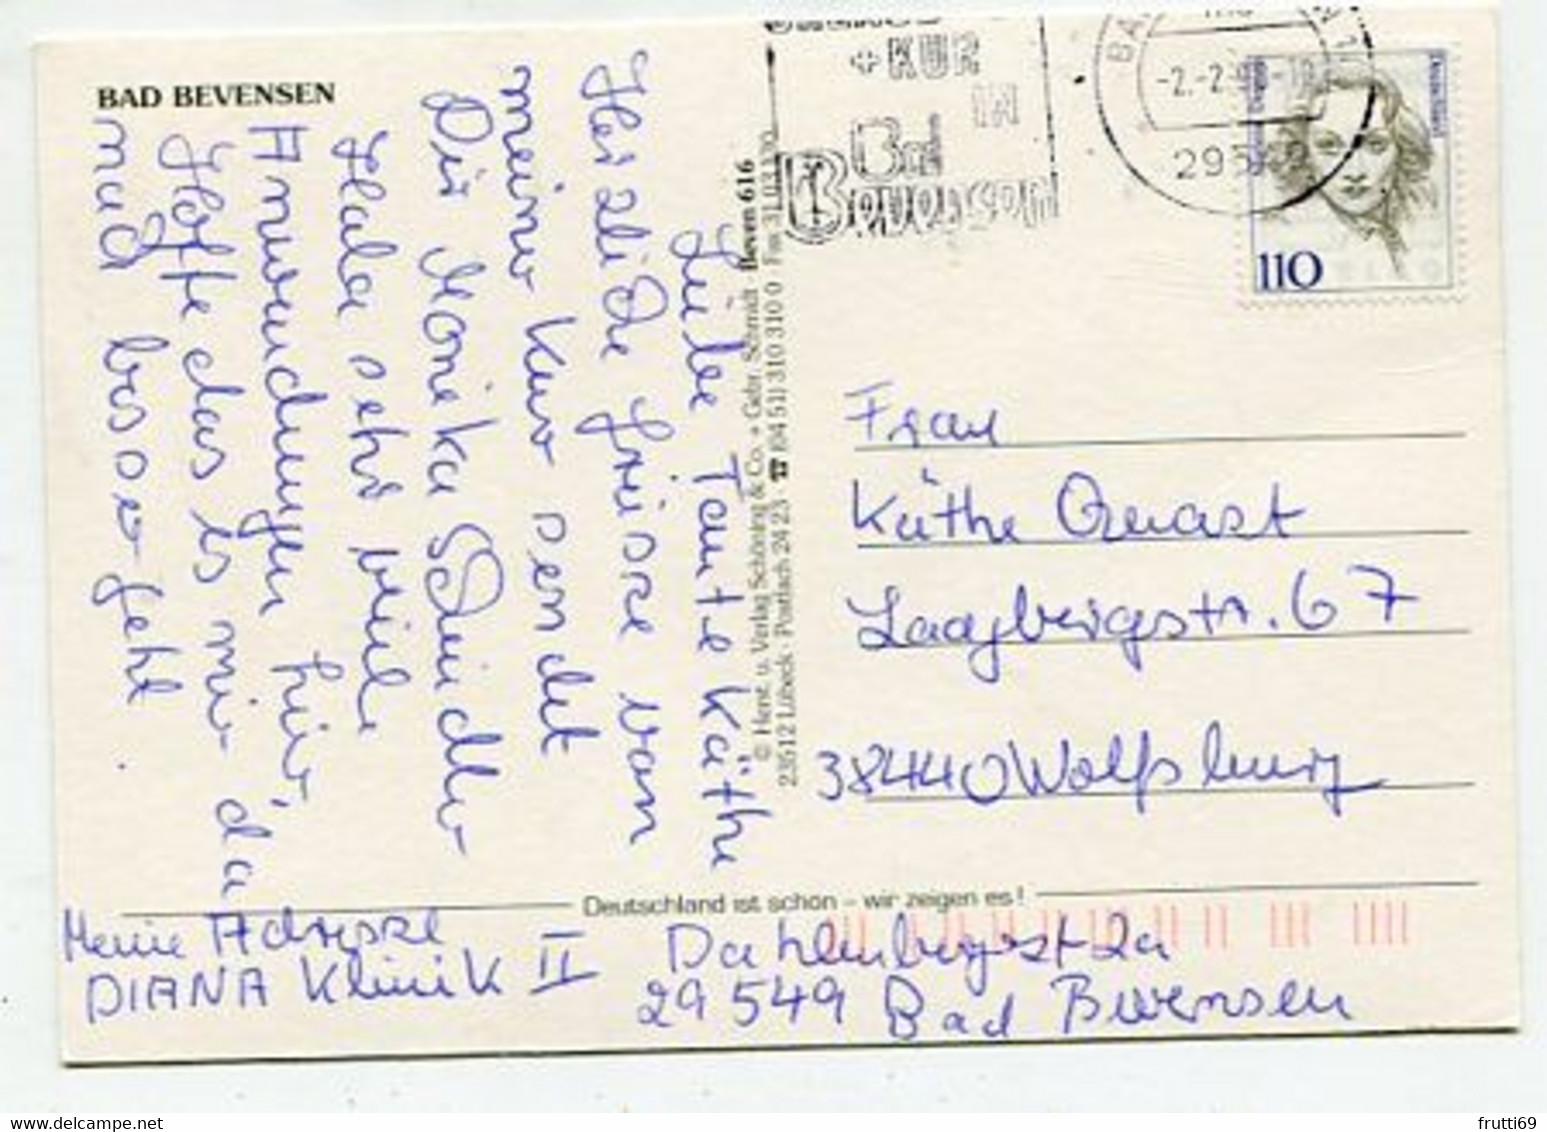 BAD BEVENSEN
Liebe Tante Käthe
Herzliche Grüsse von
meiner Kur sendet
Dir Monika Schindler
Habe sehr viele
Anwendungen hier,
Hoffe das es mir da
nach besser geht.
Meine Adresse
DIANA Klinik II
Dahlenburgerst 2a
29549 Bad Bevensen
Deutschland ist schön – wir zeigen es!
© Herst. u. Verlag Schöning & Co. + Gebr. Schmidt Beven 616
23512 Lübeck · Postfach 24 23 · ☎ (04 51) 310 310 0
+ KUR
IN
Bad
Bevensen
-2.-2.
110
Frau
Käthe Quast
Laagbergstr. 67
38440 Wolfsburg
frutti69